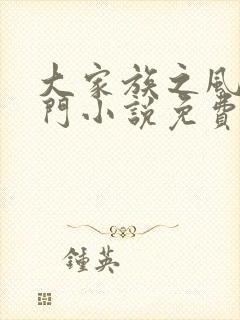 大家族之風
門小說免費
鍾英